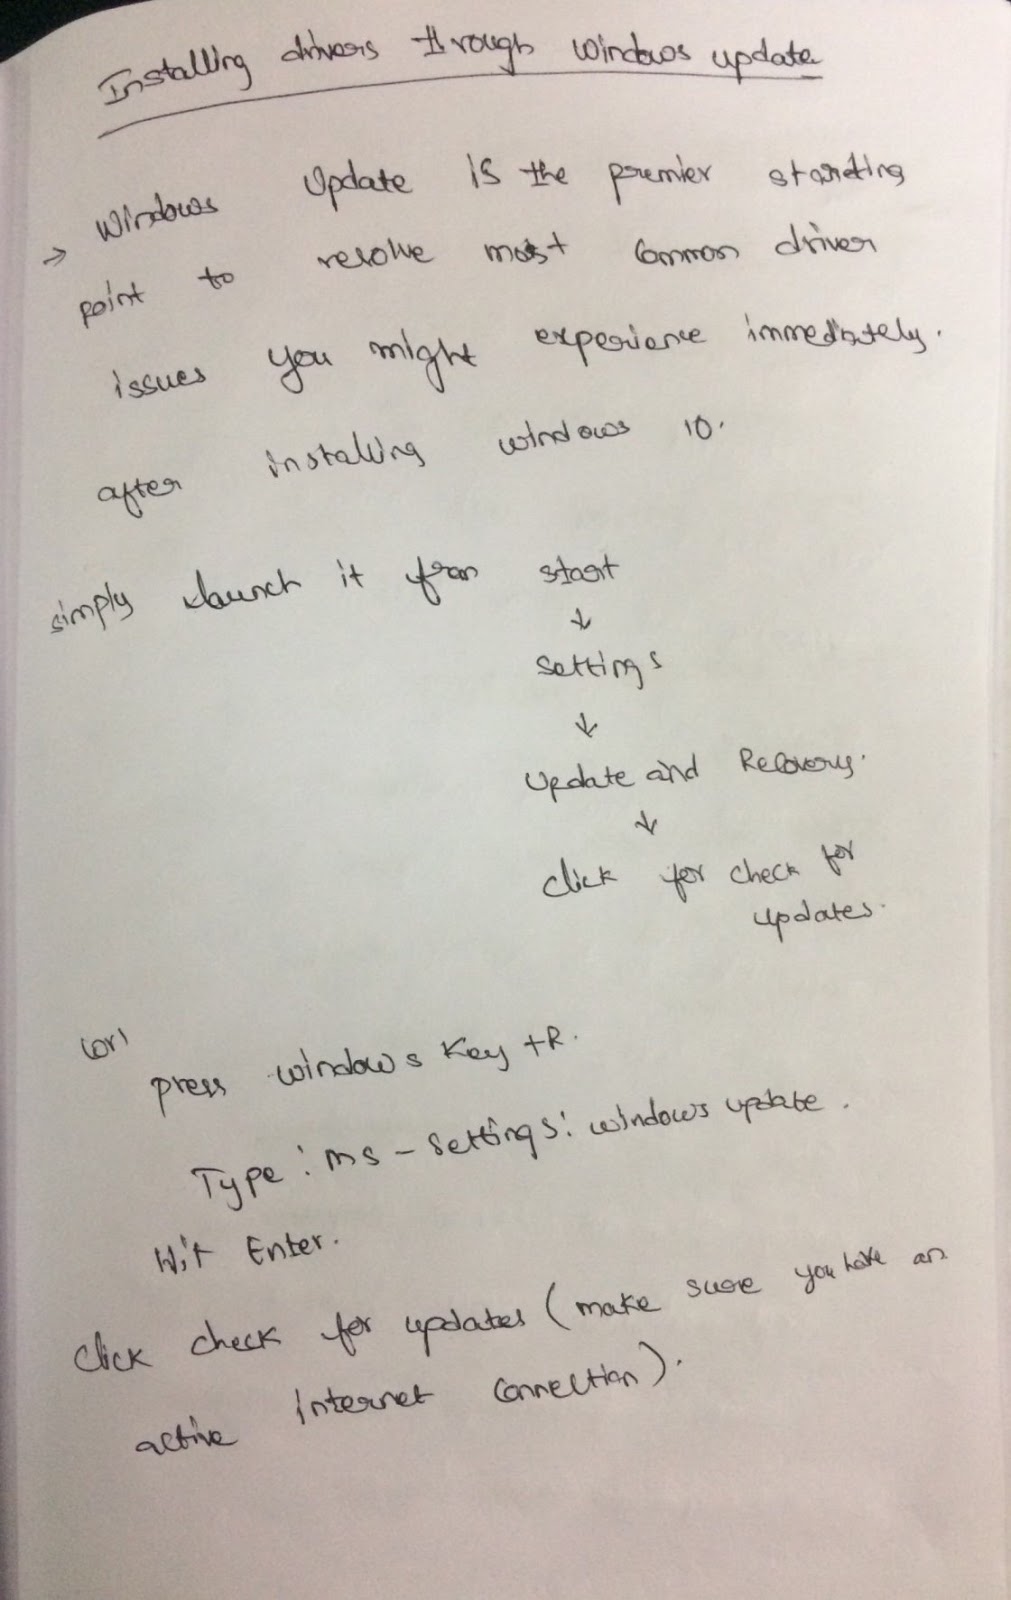 Installing drivers through windows update
→ Windows Update is the premier starting
point to resolve most common driver
issues you might experience immediately.
after installing windows 10.
simply launch it from start
↓
settings
↓
Update and Recovery.
↓
click for check for
updates.
(or)
press windows Key +R.
Type : ms - settings: windows update .
Hit Enter.
click check for updates (make sure you have an
active internet connection).